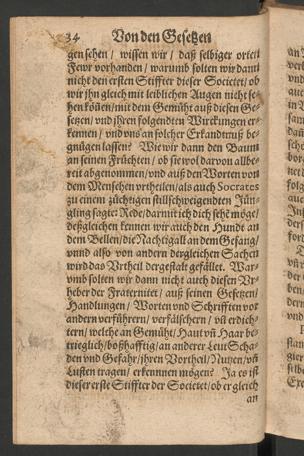 34 Von den Gesetzen
gen sehen / wissen wir / daß selbiger orten
Fewr vorhanden / warumb solten wir dann
nicht den ersten Stiffter dieser Societet / ob
wir ihn gleich mit leiblichen Augen nicht se-
hen köñen / mit dem Gemüht auß diesen Ge-
setzen / vnd ihren folgendten Wirckungen er-
kennen / vnd vns an solcher Erkandtnuß be-
gnügen lassen? Wie wir dann den Baum
an seinen Früchten / ob sie wol darvon allbe-
reit abgenommen / vnd auß den Worten von
dem Menschen vrtheilen / als auch Socrates
zu einem züchtigen stillschweigendten Jün-
gling sagte: Rede / darmit ich dich seh? möge /
deßgleichen kennen wir auch den Hundt an
dem Bellen / die Nachtigall an dem Gesang /
vnnd also von andern dergleichen Sachen
wird das Vrtheil dergestalt gefället. War-
umb solten wir dann nicht auch diesen Vr-
heber der Fraternitet / auß seinen Gesetzen /
Handlungen / Worten vnd Schrifften vor
andern verführern / verfälschern / vñ erdich-
tern / welche an Gemüht / Haut vñ Haar be-
trieglich / boßhafftig / an anderer Leut Scha-
den vnd Gefahr / ihren Vortheil / Nutzen / vñ
Lusten tragen / erkennnen mögen? Ja es ist
dieser erste Stiffter der Societet / ob er gleich
an